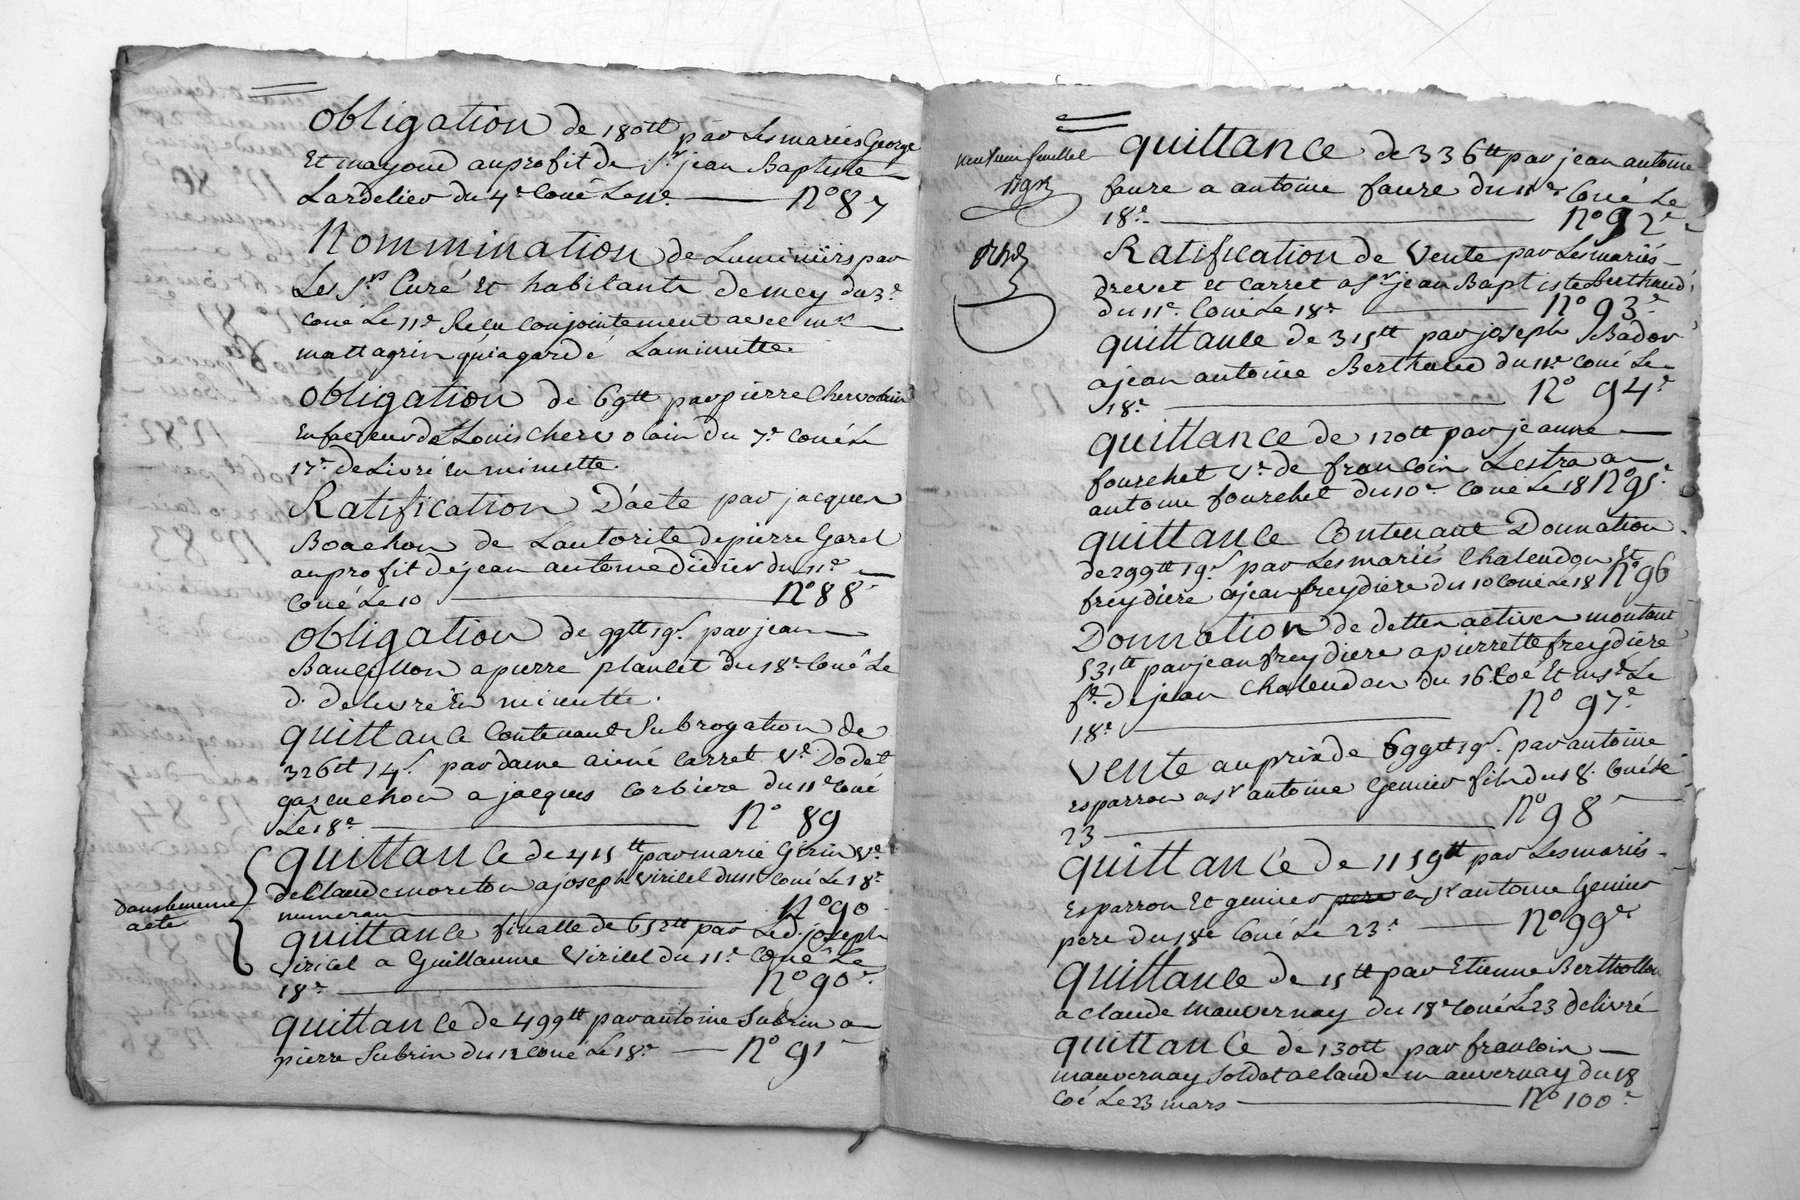 obligation de 180tt par Les mariés George
Et mayoud au profit de Sr jean Baptiste
Lardelier du 4e Coné Le 11e. N° 87
Nommination de Luminiers par
Les Srs Curé Et habitants de mey du 3e
Coné Le 11e Recu Conjointement avec mr
mattagrin qui a gardé La minutte.
obligation de 69tt par pierre Chervolain
En faveur de Louis Chervolain du 7e Coné Le
17e deLivré En minutte.
Ratification D'acte par jacques
Boachon de L'autorite de pierre Garel
au profit de jean antoine didier du 11e
Coné Le 10 N° 88e
obligation de 99tt 19s. par jean
Bancillon a pierre planlet du 18e Coné Le
d. delivré En minutte.
quittance Contenant Subrogation de
326tt 14s. par dame aimé Carret Ve. Dodat
gaz en chon a jacques Corbiere du 11e Coné
Le 18e N° 89
quittance de 415tt par marie Gérin Ve.
de Claude moreton a joseph viricel du 11 Coné Le 18e
numeran N° 90
dans le meme
acte
quittance finalle de 652tt par Led. joseph
viricel a Guillaume viricel du 11e Coné Le
18e N° 90e
quittance de 499tt par antoine Subrin a
pierre Subrin du 12 Coné Le 18e N° 91e
feuillet
quittance de 336tt par jean antoine
faure a antoine faure du 11e Coné Le
18e N° 92e
Ratification de vente par Les mariés
drevet et Carret a Sr jean Baptiste Berthaud
du 11e. Coné Le 18e N° 93e
quittance de 315tt par joseph Bador
a jean antoine Berthaud du 11e Coné Le
18e N° 94e
quittance de 120tt par jeanne
fourchet Ve. de francoin Lestra a
antoine fourchet du 10e Coné Le 18 N° 95e
quittance Contenant Donnation
de 299tt 19s. par Les mariés Chalendon Et
freydiere a jean freydiere du 10 Coné Le 18 N° 96
Donnation de dettes actives montant
531tt par jean freydiere a pierrette freydiere
fe. de jean Chalendon du 16 Coé Et insé Le
18e N° 97e
vente au prix de 699tt 19s. par antoine
Esparron a Sr antoine Genier fils du 18. Coné Le
23 N° 98
quittance de 1159tt par Les mariés
Esparron Et genier pere a Sr antoine Genier
pere du 18e Coné Le 23e N° 99e
quittance de 15tt par Etienne Berthollon
a claude mauvernay du 18e Coné Le 23 delivré
quittance de 130tt par francoin
mauvernay Soldat a claude mauvernay du 18
Coé Le 23 mars N° 100e